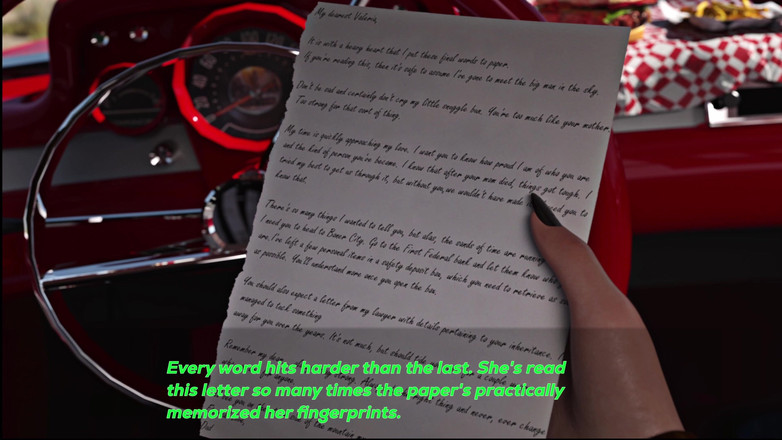 My dearest Valeria,
It is with a heavy heart that I put these final words to paper.
If you're reading this, then it's safe to assume I've gone to meet the big man in the sky.
Don't be sad and certainly don't cry my little snuggle bun. You're too much like your mother.
Too strong for that sort of thing.
My time is quickly approaching my love. I want you to know how proud I am of who you are
and the kind of person you've became. I know that after your mom died, things got tough. I
tried my best to get us through it, but without you, we wouldn't have made you to
know that.
There's so many things I wanted to tell you, but alas, the sands of time are running
I need you to head to Boner City. Go to the First Federal bank and let them know who
are. I've left a few personal items in a safety deposit box, which you need to retrieve as
as possible. You'll understand more once you open the box.
You should also expect a letter from my lawyer with details pertaining to your inheritance. I
managed to tuck something
away for you over the years. It's not much, but should
Remember my
thing and never, ever change
of the mountain
Dad
Every word hits harder than the last. She's read
this letter so many times the paper's practically
memorized her fingerprints.